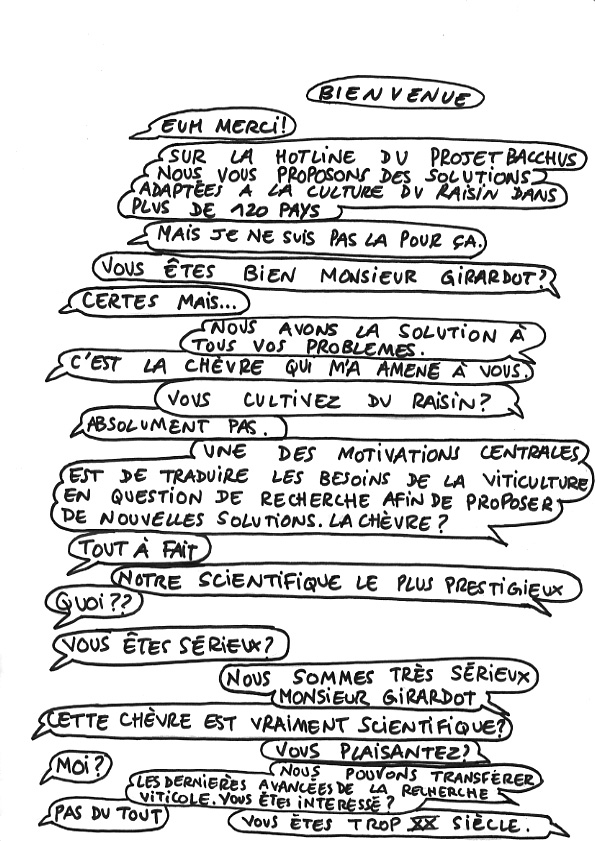 BIENVENUE
EUH MERCI!
SUR LA HOTLINE DU PROJET BACCHUS
NOUS VOUS PROPOSONS DES SOLUTIONS
ADAPTÉES A LA CULTURE DU RAISIN DANS
PLUS DE 120 PAYS
MAIS JE NE SUIS PAS LA POUR ÇA.
VOUS ÊTES BIEN MONSIEUR GIRARDOT?
CERTES MAIS...
NOUS AVONS LA SOLUTION À
TOUS VOS PROBLEMES.
C'EST LA CHÈVRE QUI M'A AMENÉ À VOUS.
VOUS CULTIVEZ DU RAISIN?
ABSOLUMENT PAS.
UNE DES MOTIVATIONS CENTRALES
EST DE TRADUIRE LES BESOINS DE LA VITICULTURE
EN QUESTION DE RECHERCHE AFIN DE PROPOSER
DE NOUVELLES SOLUTIONS. LA CHÈVRE?
TOUT À FAIT
NOTRE SCIENTIFIQUE LE PLUS PRESTIGIEUX
QUOI??
VOUS ÊTES SÉRIEUX?
NOUS SOMMES TRÈS SÉRIEUX
MONSIEUR GIRARDOT
CETTE CHÈVRE EST VRAIMENT SCIENTIFIQUE?
VOUS PLAISANTEZ?
MOI?
NOUS POUVONS TRANSFÉRER
LES DERNIERES AVANCÉES DE LA RECHERCHE
VITICOLE. VOUS ÊTES INTERESSÉ?
PAS DU TOUT
VOUS ÊTES TROP XX SIÈCLE.